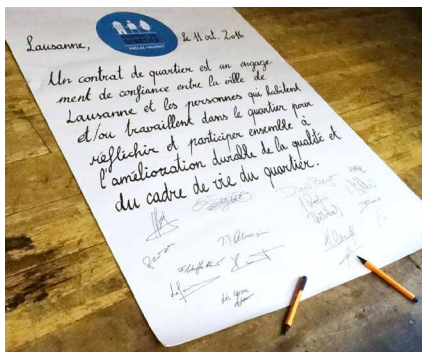 Lausanne, le 11 oct. 2016
QUARTIER
Un contrat de quartier est un engage-
ment de confiance entre la ville de
Lausanne et les personnes qui habitent
et/ou travaillent dans le quartier pour
réfléchir et participer ensemble à
l'amélioration durable de la qualité et
du cadre de vie du quartier.